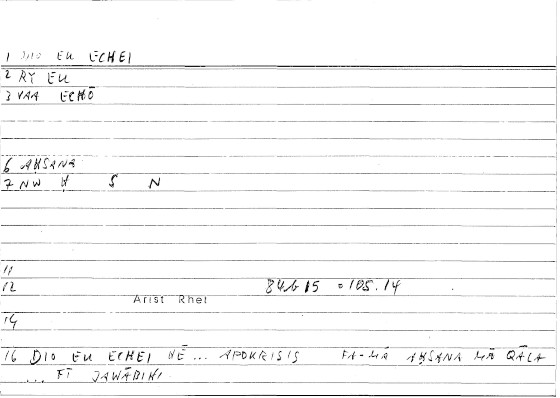 1 DIO EU ECHEI
2 RY EU
3 VAA ECHŌ
6 AḤSANA
7 NW Ḥ S N
11
12 84b15 = 105.14
Arist Rhet
14
16 DIO EU ECHEI HĒ ... APOKRISIS FA-MĀ AḤSANA MĀ QĀLA
... FĪ JAWĀBIHI